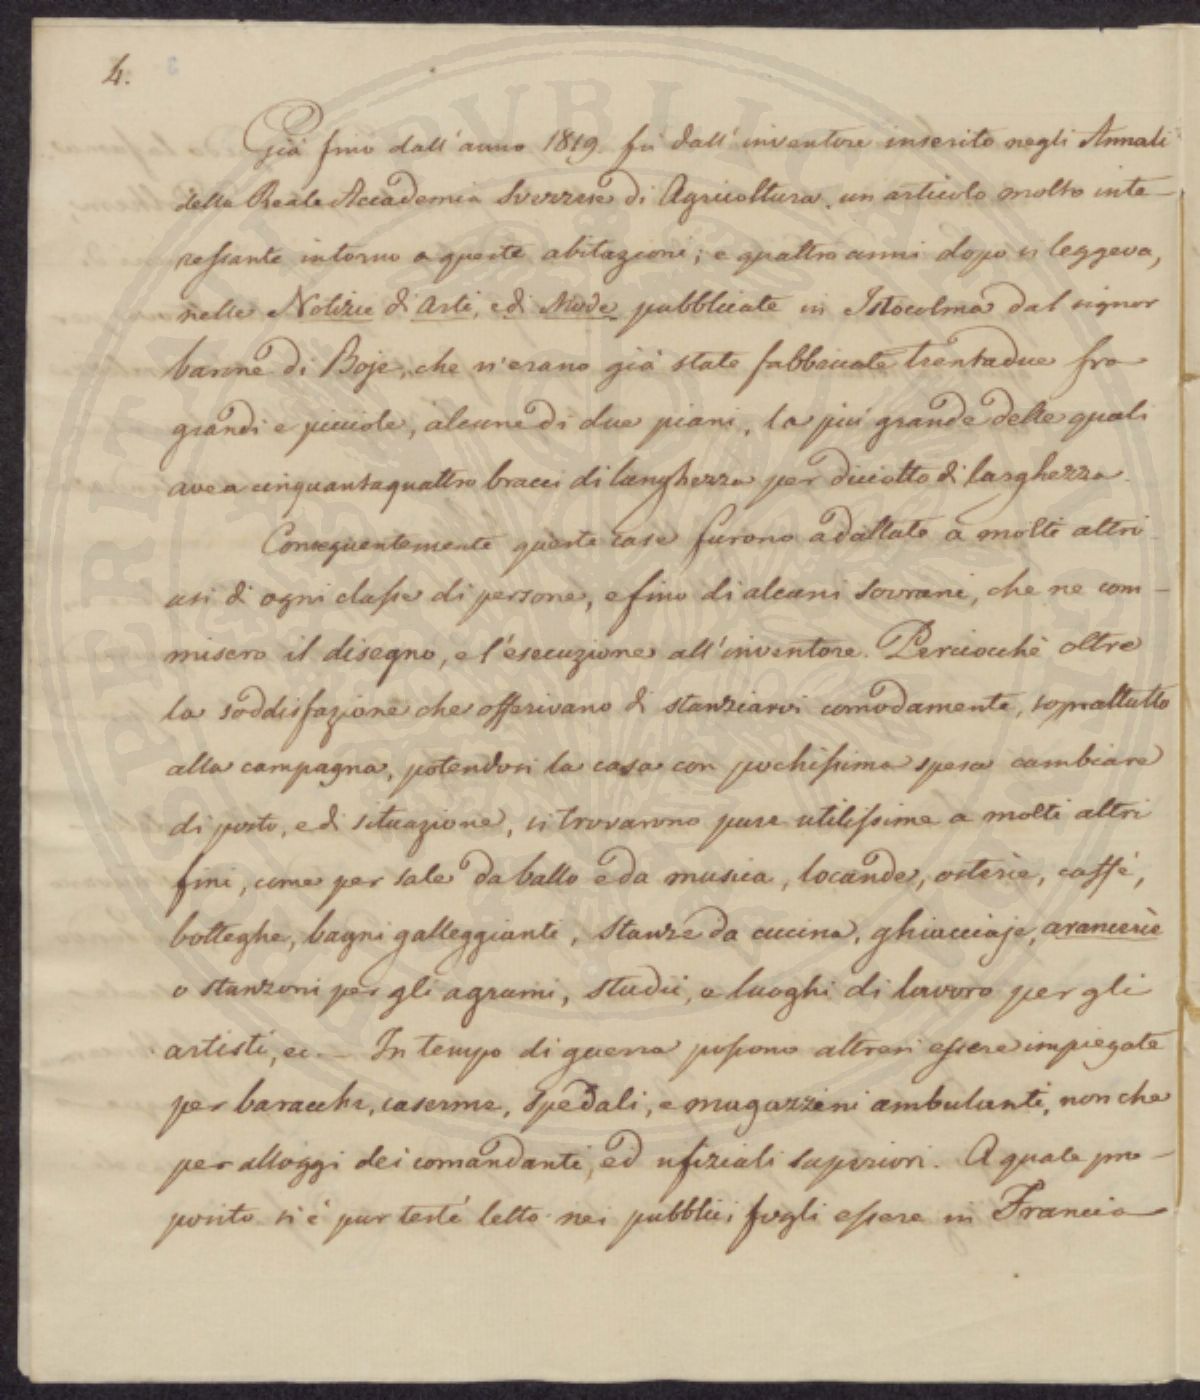 4.
Già fino dall'anno 1819. fu dall'inventore inserito negli Annali
della Reale Accademia Svezzese di Agricoltura, un articolo molto inte-
ressante intorno a queste abitazioni; e quattro anni dopo si leggeva,
nelle Notizie di Arti, e di Mode, pubblicate in Istocolma dal signor
barone di Boje, che n'erano già state fabbricate trentadue fra
grandi e picciole, alcune di due piani, la più grande delle quali
avea cinquantaquattro bracci di lunghezza per diciotto di larghezza.
Conseguentemente queste case furono adattate a molti altri
usi di ogni classe di persone, e fino di alcuni Sovrani, che ne com-
misero il disegno, e l'esecuzione all'inventore. Perciocchè oltre
la soddisfazione che offerivano di stanziarvi comodamente, soprattutto
alla campagna, potendosi la casa con pochissima spesa cambiare
di posto, e di situazione, si trovarono pure utilissime a molti altri
fini, come per sale da ballo e da musica, locande, osterie, caffè,
botteghe, bagni galleggianti, stanze da cucina, ghiacciaje, arancerie
o stanzoni per gli agrumi, studii, o luoghi di lavoro per gli
artisti, ec. – In tempo di guerra possono altresì essere impiegate
per baracche, caserme, spedali, e magazzini ambulanti, non che
per alloggi dei comandanti, ed ufiziali superiori. A quale pro-
posito si è pur testè letto nei pubblici fogli essere in Francia